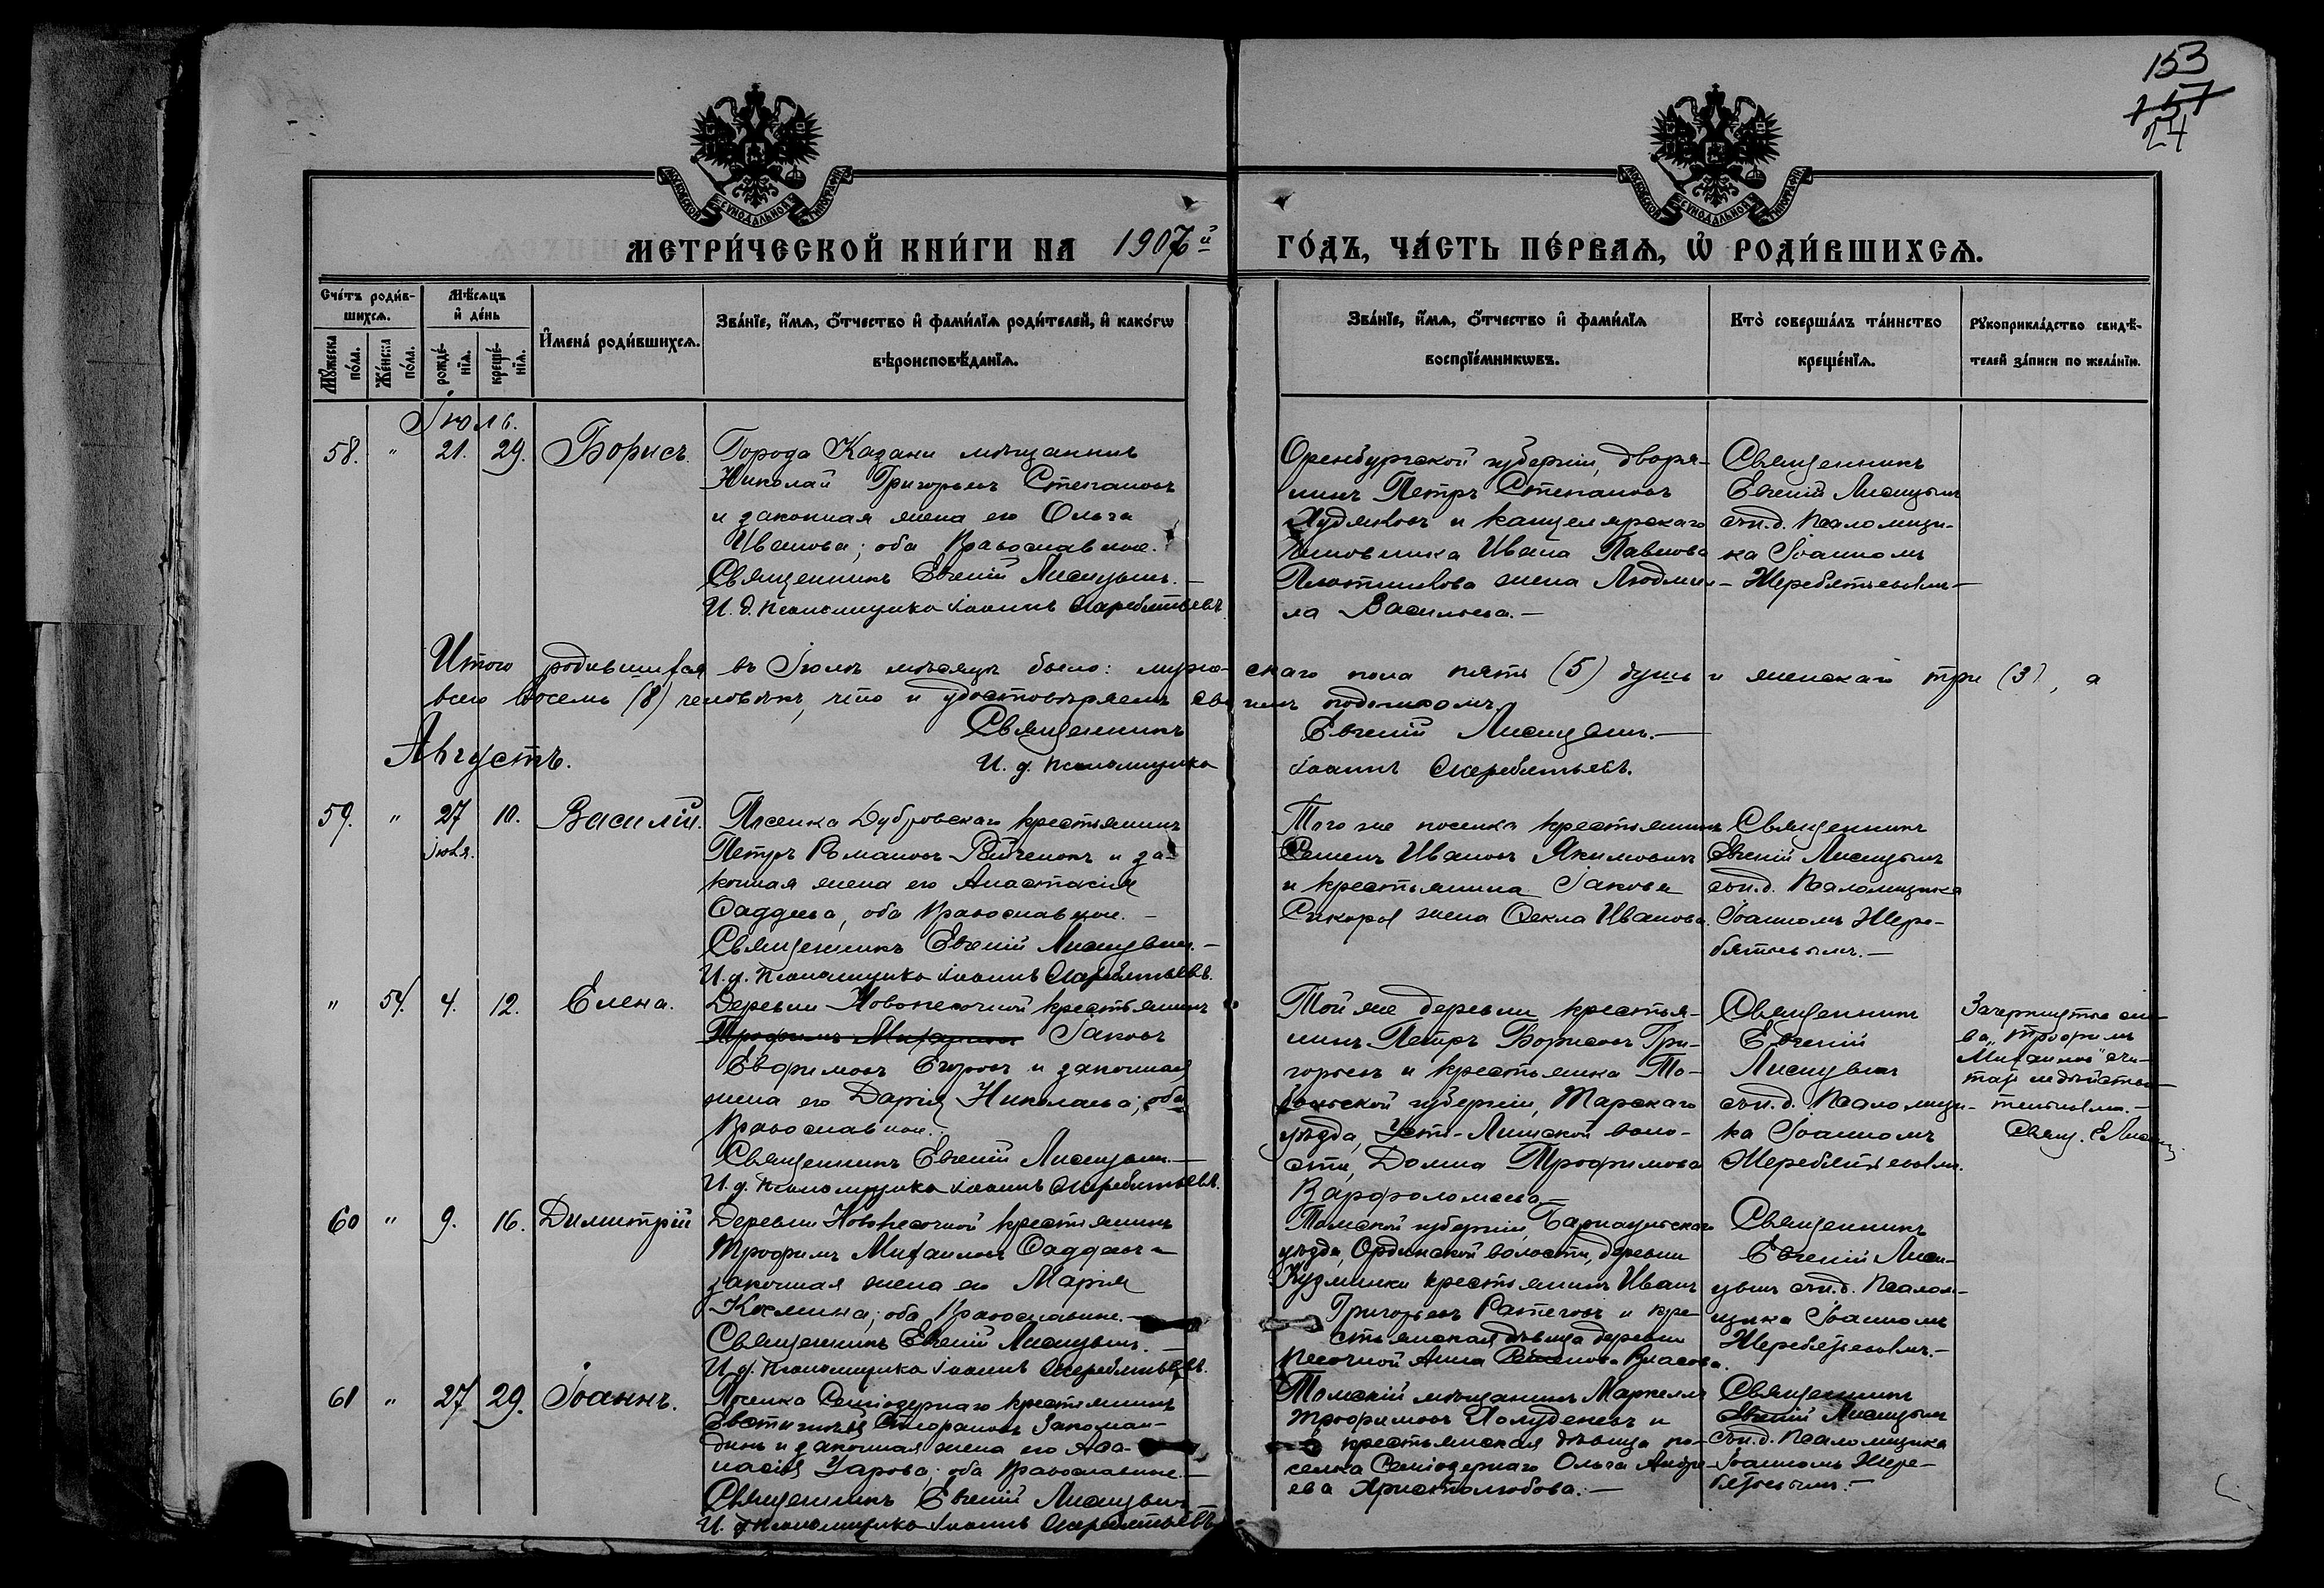 153
157
24
МОСКОВСКОЙ СѴНОДАЛЬНОЙ ТИПОГРАФІИ
МОСКОВСКОЙ СѴНОДАЛЬНОЙ ТИПОГРАФІИ
МЕТРИ́ЧЕСКОЙ КНИ́ГИ НА 1907й ГО́ДЪ, ЧА́СТЬ ПЕ́РВАѦ, Ѽ РОДИ́ВШИХСѦ.
Сче́тъ роди́в-
шихсѧ.
Мꙋ́жеска
по́ла.
Же́нска
по́ла.
Мѣ́сѧцъ
и҆ де́нь
рожде́-
нїѧ.
креще́-
нїѧ.
И҆мена̀ роди́вшихсѧ.
Зва́нїе, и҆́мѧ, ѻ҆́тчество и҆ фами́лїѧ роди́телей, и҆ како́гѡ
вѣроисповѣ́данїѧ.
Зва́нїе, и҆́мѧ, ѻ҆́тчество и҆ фами́лїѧ
воспрїе́мникѡвъ.
Кто̀ соверша́лъ та́инство
креще́нїѧ.
Рꙋкоприкла́дство свидѣ́-
телей за́писи по жела́нїю.
Іюль.
58. " 21. 29. Борисъ.
Города Казани мѣщанинъ
Николай Григорьевъ Степановъ
и законная жена его Ольга
Иванова; оба православные.
Священникъ Евгеній Лисицынъ.—
И. д. псаломщика Іоаннъ Жеребятьевъ.
Оренбургской губерніи, дворя-
нинъ Петръ Степановъ
Худяковъ и канцелярскаго
чиновника Ивана Павлова
Плотникова жена Людми-
ла Васильева.—
Священникъ
Евгеній Лисицынъ
съ и.д. псаломщи-
ка Іоанномъ
Жеребятьевымъ—
Итого родившихся въ Іюлѣ мѣсяцѣ было: мужескаго пола пять (5) душъ и женскаго три (3), а
всего восемь (8) человѣкъ, что и удостовѣряемъ своимъ подписомъ.
Священникъ Евгеній Лисицынъ.—
И. д. псаломщика Іоаннъ Жеребятьевъ.
Августъ.
59. " 27 10. Василій.
Іюля.
Поселка Дубровскаго крестьянинъ
Петръ Романовъ и за-
конная жена его Анастасія
Фаддеева, оба православные.—
Священникъ Евгеній Лисицынъ.—
И. д. псаломщика Іоаннъ Жеребятьевъ.
Того же поселка крестьянинъ
Семенъ Ивановъ Якимовичъ
и крестьянина Іакова
жена Ѳекла Иванова.
Священникъ
Евгеній Лисицынъ
съ и.д. псаломщика
Іоанномъ Жере-
бятьевымъ.—
" 54. 4. 12. Елена.
Деревни Новопесочной крестьянинъ
Трофимъ Михаиловъ Іаковъ
Евфимовъ Егоровъ и законная
жена его Дарія Николаева; оба
православные.
Священникъ Евгеній Лисицынъ.—
И. д. псаломщика Іоаннъ Жеребятьевъ.
Той же деревни крестья-
нинъ Петръ Борисовъ Гри-
горьевъ и крестьянка То-
больской губерніи, Тарскаго
уѣзда, воло-
сти, Домна Трофимова
Варфоломеева—
Священникъ
Евгеній
Лисицынъ
съ и.д. псаломщи-
ка Іоанномъ
Жеребятьевымъ.
Зачеркнутые сло-
ва „Трофимъ
Михаиловъ" счи-
тать недѣйстви-
тельными.—
Свящ. Е. Лисиц
60 " 9. 16. Димитрій
Деревни Новопесочной крестьянинъ
Трофимъ Михаиловъ Фаддеевъ и
законная жена его Марія
Космина; оба православные.—
Священникъ Евгеній Лисицынъ.—
И. д. псаломщика Іоаннъ Жеребятьевъ.
Томской губерніи, Барнаульскаго
уѣзда, Ордынской волости, деревни
Кузминки крестьянинъ Иванъ
Григорьевъ и кре-
стьянская дѣвица деревни
Песочной Анна Семенова Власова.
Священникъ
Евгеній Лиси-
цынъ съ и.д. псалом-
щика Іоанномъ
Жеребятьевымъ.—
61 " 27 29. Іоаннъ.
Поселка Семіозернаго крестьянинъ
и законная жена его Аѳа-
насія Уарова; оба православные.—
Священникъ Евгеній Лисицынъ—
И. д. псаломщика Іоаннъ Жеребятьевъ
Томскій мѣщанинъ Маркеллъ
Трофимовъ и
крестьянская дѣвица по-
селка Семіозернаго Ольга Андре-
ева Христолюбова.—
Священникъ
Евгеній Лисицынъ
съ и.д. псаломщика
Іоанномъ Жере-
бятьевымъ.—